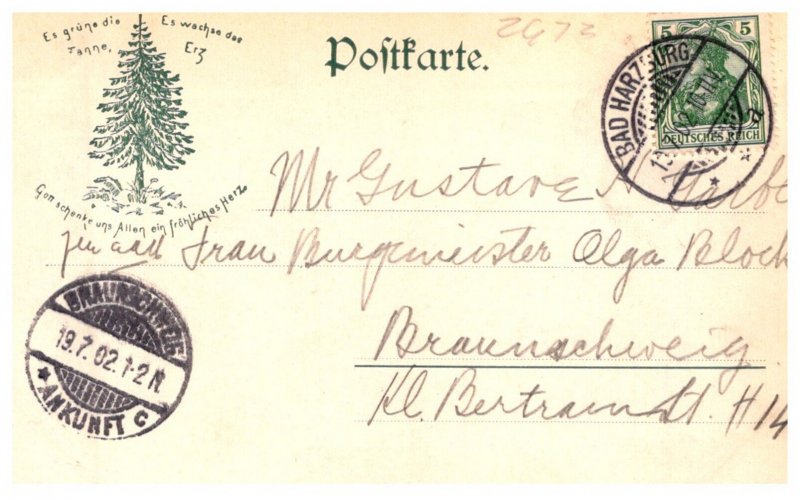 Es grüne die Tanne,
Es wachse das Erz
Gott schenke uns Allen ein fröhliches Herz
Postkarte.
2973
5 5
DEUTSCHES REICH
BAD HARZBURG
a
Mr Gustave A
Frau Burgemeister Olga Block
Braunschweig
Kl. Bertramst. H 14
BRAUNSCHWEIG
19.7.02.1-2N
ANKUNFT C